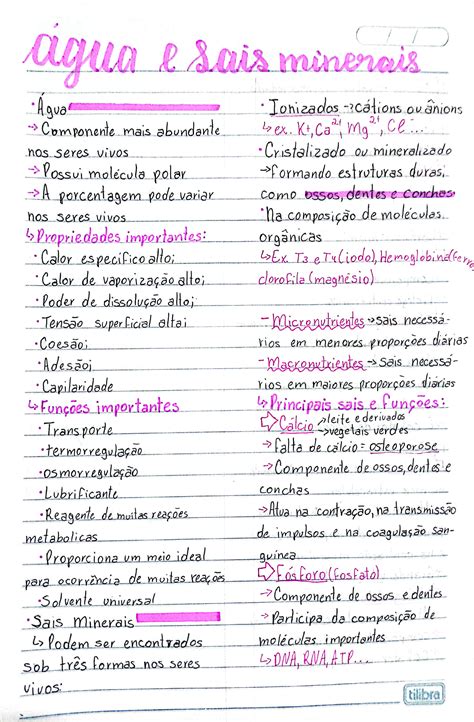 água e sais minerais
• Água
→ Componente mais abundante
nos seres vivos
→ Possui molécula polar
→ A porcentagem pode variar
nos seres vivos
↳ Propriedades importantes:
• Calor específico alto;
• Calor de vaporização alto;
• Poder de dissolução alto;
• Tensão superficial alta;
• Coesão;
• Adesão;
• Capilaridade
↳ Funções importantes
• Transporte
• termorregulação
• osmorregulação
• Lubrificante
• Reagente de muitas reações
metabolicas
• Proporciona um meio ideal
para ocorrência de muitas reações
• Solvente universal
• Sais Minerais
↳ Podem ser encontrados
sob três formas nos seres
vivos:
• Ionizados → Cátions ou ânions
↳ ex. K+, Ca2+, Mg2+, Cl-...
• Cristalizado ou mineralizado
→ formando estruturas duras,
como ossos, dentes e conchas
• Na composição de moléculas
orgânicas
↳ Ex. T3 e T4 (iodo), Hemoglobina (Ferro)
clorofila (magnésio)
- Micronutrientes → sais necessá-
rios em menores proporções diárias
- Macronutrientes → Sais necessá-
rios em maiores proporções diárias
↳ Principais sais e funções:
⇨ Cálcio → leite e derivados
→ vegetais verdes
→ falta de cálcio = osteoporose
→ Componente de ossos, dentes e
conchas
→ Atua na contração, na transmissão
de impulsos e na coagulação san-
guínea
⇨ Fósforo (fosfato)
→ Componente de ossos e dentes
→ Participa da composição de
moléculas importantes
↳ DNA, RNA, ATP...
tilibra